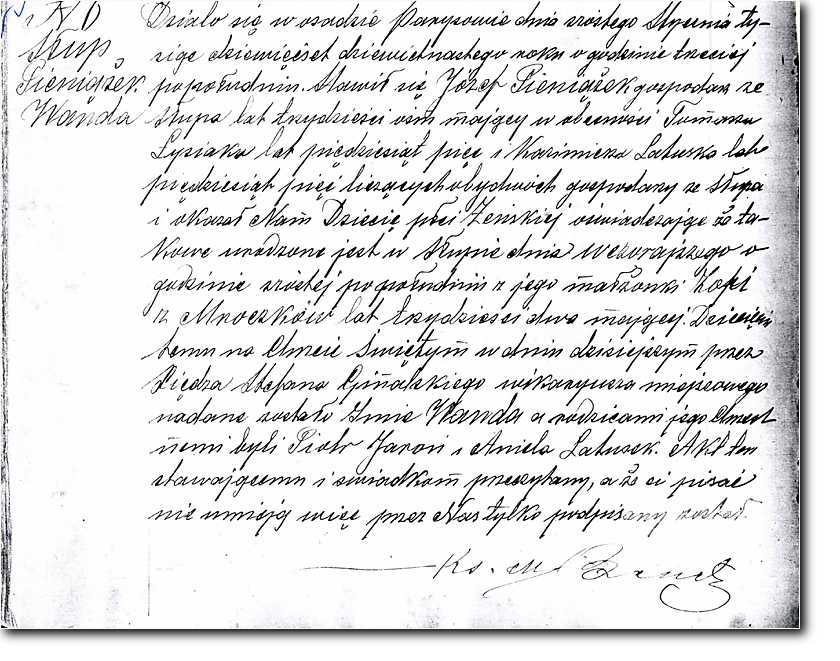 N 10
Słup
Pieniążek
Wanda
Działo się w osadzie Parysowie dnia szóstego Stycznia ty-
siąc dziewięćset dziewietnastego roku o godzinie trzeciej
popołudniu. Stawił się Józef Pieniążek gospodarz ze
Słupa lat trzydzieści ośm mający w obecności Tomasza
Łysiaka lat pięćdziesiąt pięć i Kazimierza Latuska lat
pięćdziesiąt pięć liczących obydwóch gospodarzy ze Słupa
i okazał Nam Dziecię płci Żeńskiej oświadczając że ta-
kowe urodzone jest w Słupie dnia wczorajszego o
godzinie szóstej popołudniu z jego małżonki Zofii
z Mroczków lat trzydzieści dwa mającej. Dziecięciu
temu na Chrzcie Świętym w dniu dzisiejszym przez
Księdza Stefana Ginalskiego wikaryusza miejscowego
nadane zostało Imie Wanda a rodzicami jego Chrzest
nemi byli Piotr Jaroń i Aniela Latusek. Akt ten
stawającemu i świadkom przeczytany, a że ci pisać
nie umieją więc przez Nas tylko podpisany został.
Ks. M.